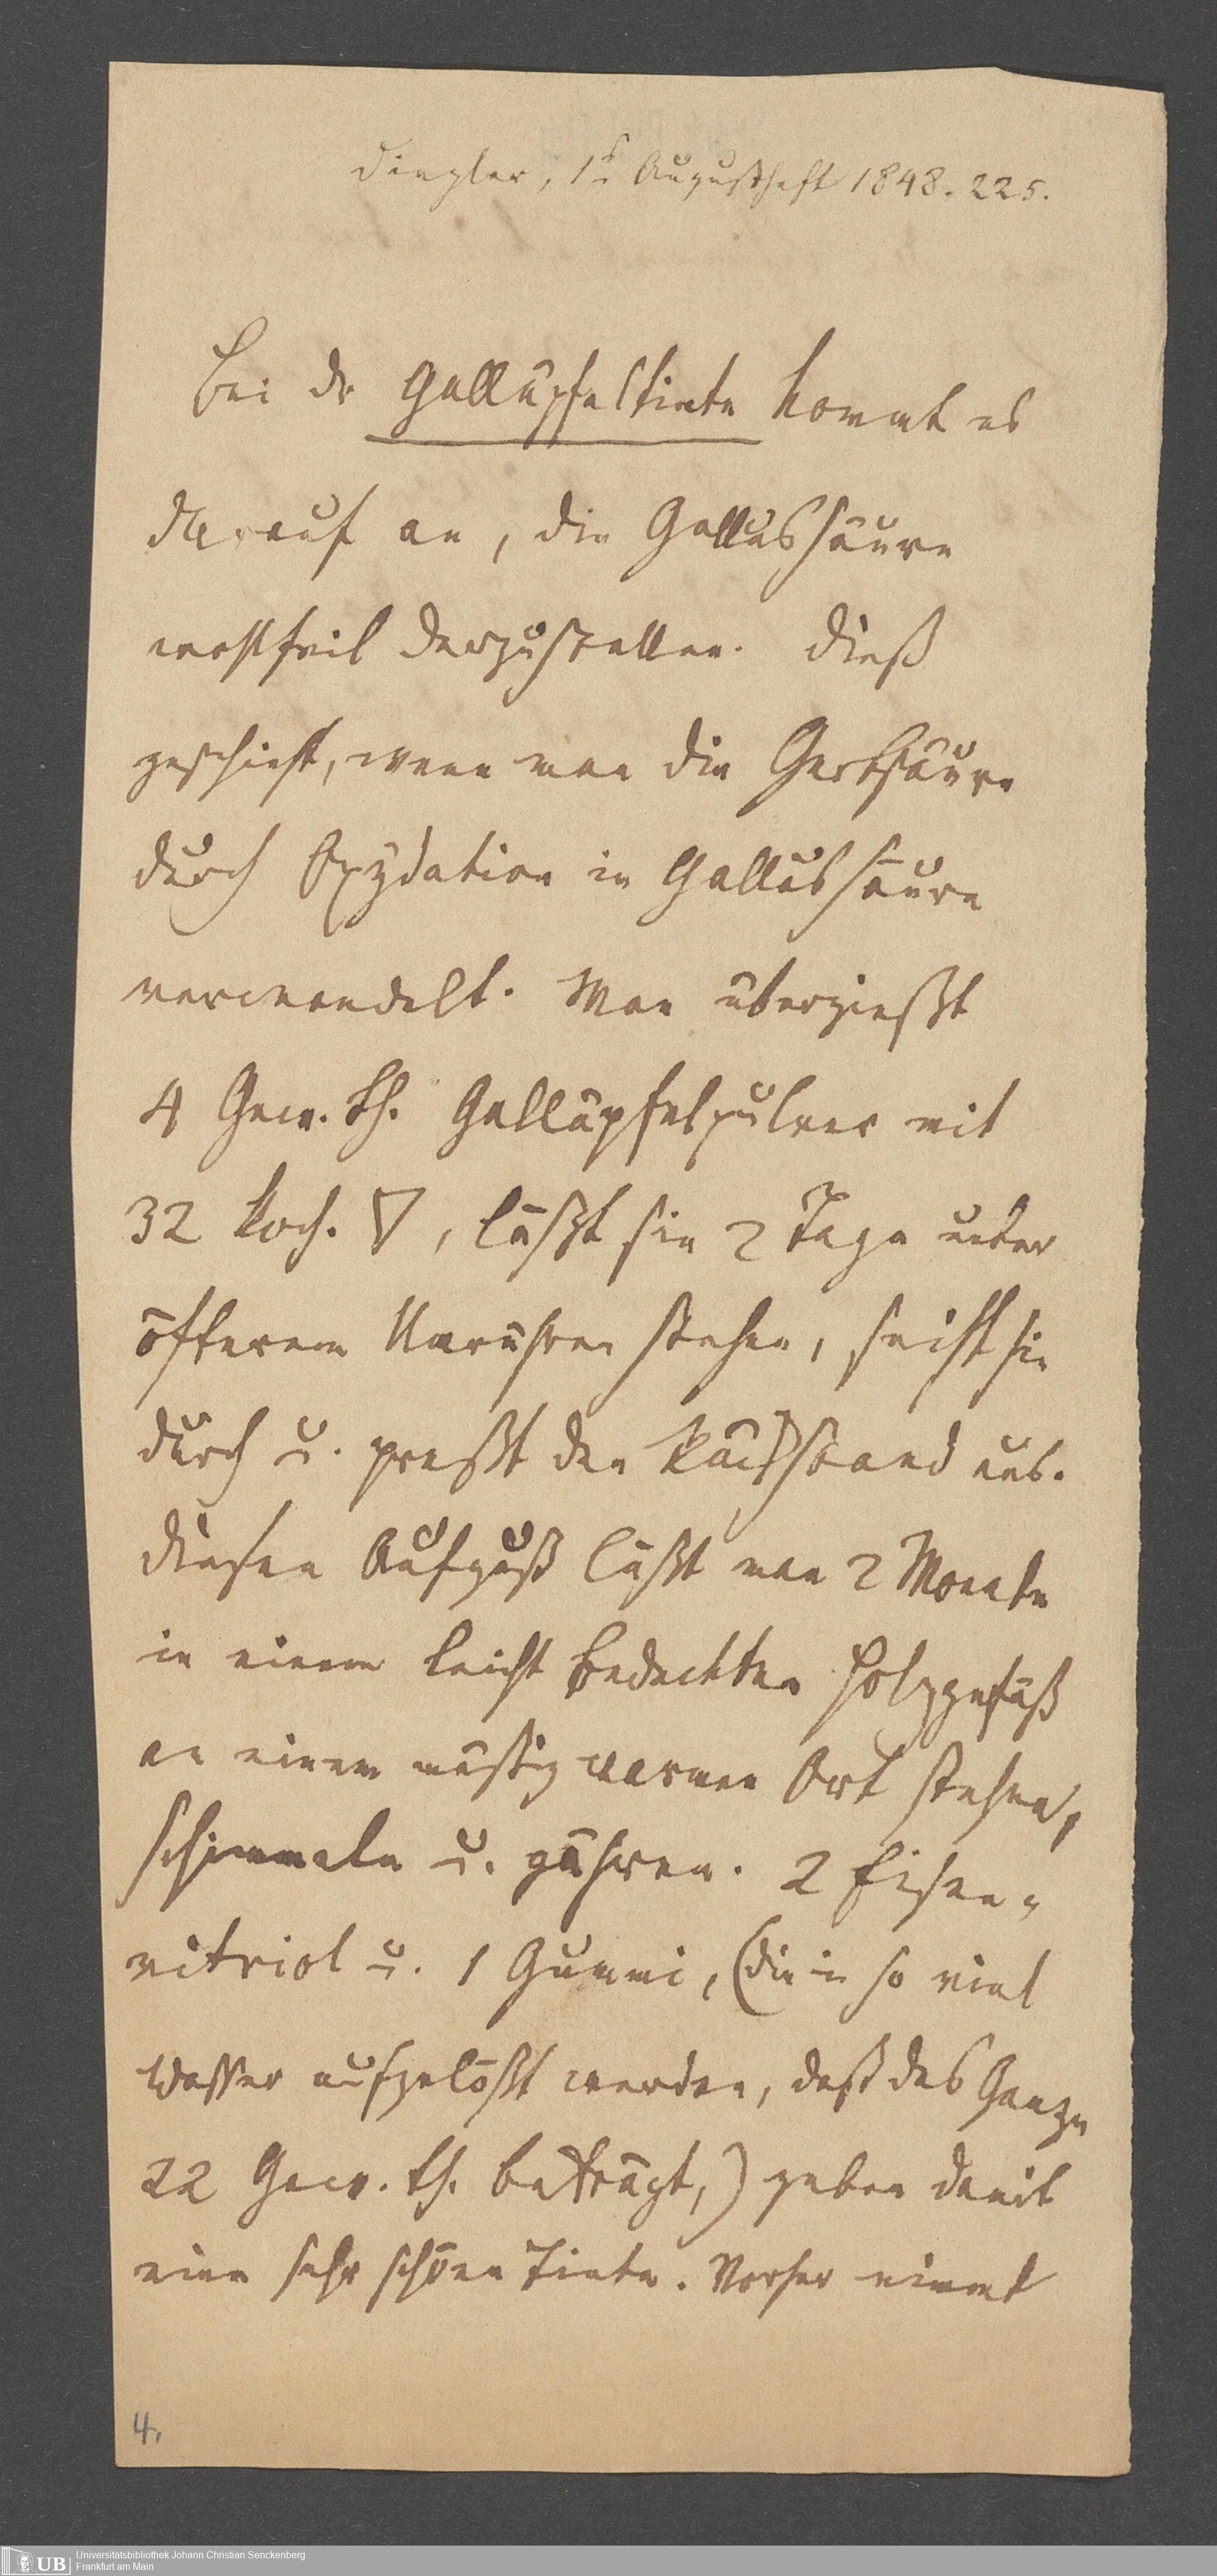 Dingler, 1s Augustheft 1848. 225.
Bei dr Galläpfeltinte kommt es
darauf an, die Gallussäure
wohlfeil darzustellen. Dieß
geschieht, wenn man die Gerbsäure
durch Oxydation in Gallussäure
verwandelt. Man übergießt
4 Gew. th. Galläpfelpulver mit
32 koch. ▽, läßt sie 2 Tage unter
öfterem Umrühren stehen, seiht sie
durch u. preßt den Rückstand aus.
Diesen Aufguß läßt man 2 Monate
in einem leicht bedeckten Holzgefäß
an einem mäßig warmen Ort stehen,
schimmeln u. gähren. 2 Eisen-
vitriol u. 1 Gummi, (die in so viel
Wasser aufgelößt werden, daß das Ganze
22 Gew. th. beträgt,) geben damit
eine sehr schöne Tinte. Vorher nimmt
4.
Universitätsbibliothek Johann Christian Senckenberg
UB
Frankfurt am Main